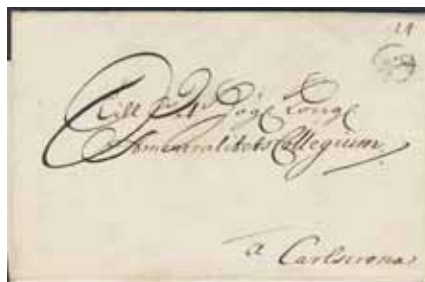 Till
Högl. Kongl.
Ammiralitets Collegium
a Carlscrona